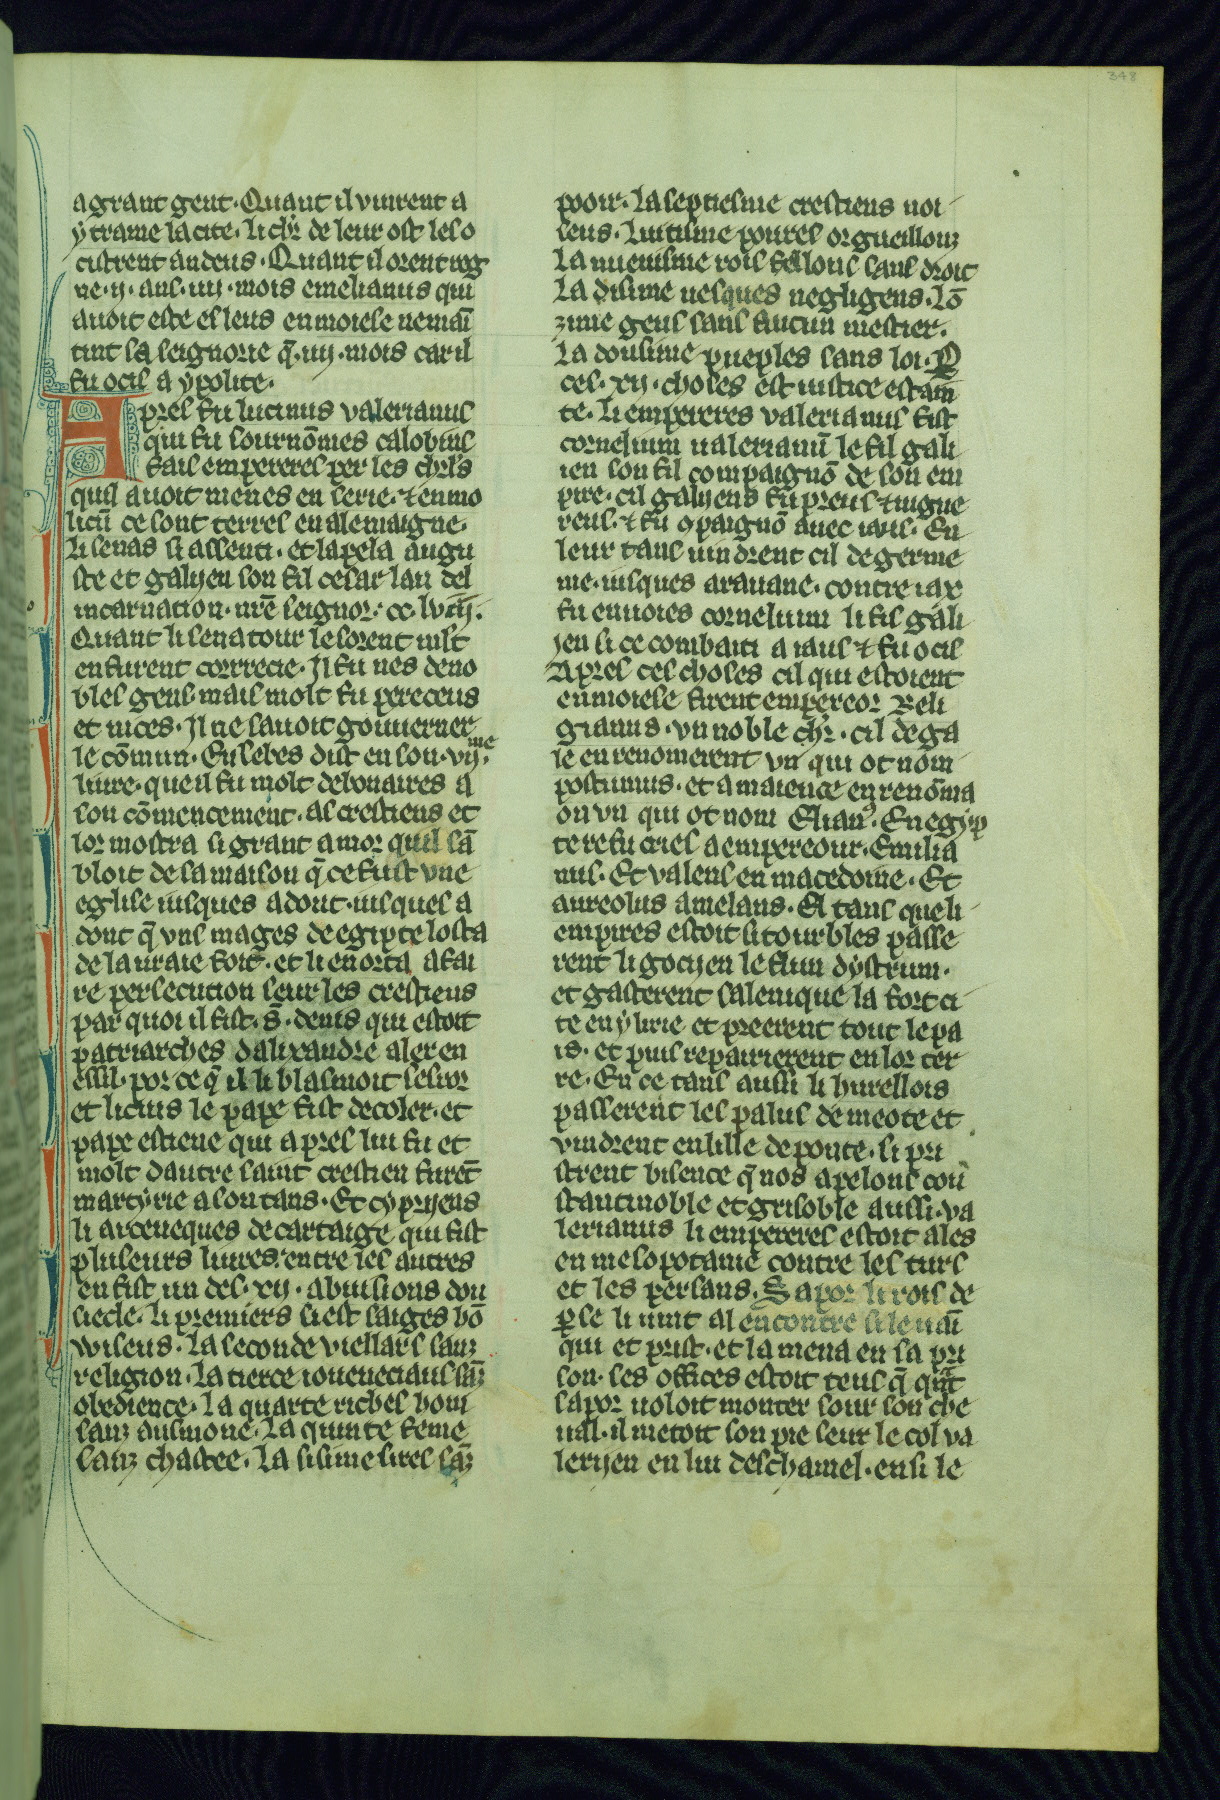 348
a grant gent. Quant il vinrent a
ytrame la cite. li chr̄ de leur ost les o
cistrent andeus. Quant il orent reg
ne .ij. ans .iiij. mois emelianus qui
auoit este esleus en moiese ne mai᷑
tint sa seignorie q̄ .iij. mois car il
fu ocis a ypolite.
Apres fu lucinus valerianus
qui fu sournōmes calobins
fais empereres per les chrl's
quil auoit menes en serie. ⁊ en mo
licū ce sont terres en alemaigne.
li senas si assenti. et lapela augu
ste et galyen son fil cesar lan del
incarnation. nr̄e seignor. cc. lviij.
Quant li senatour le sorent mlt
en furent correcie. Il fu nes de no
bles gens mais molt fu pereceus
et nices. Il ne sauoit gouuerner
le cōmun. Eusebes dist en son .vij.me
liure. que il fu molt debonaires a
son cōmencement. as crestiens et
lor mostra si grant amor quil sā
bloit de sa maison q̄ ce fust vne
eglise iusques adont. iusques a
dont q̄ vns mages de egipte losta
de la uraie foit. et li enorta a fai
re persecution seur les crestiens
par quoi il fist. s̄. denis qui estoit
patriarches dalixandre aler en
essil. por ce q̄ il li blasmoit seror
et licius le pape fist decoler. et
pape estiene qui apres lui fu et
molt dautre saint crestien furēt
martyrie a son tans. Et cypryens
li arceueques de cartaige qui fist
pluseurs liures. entre les autres
en fist un des .xij. abuisions dou
siecle. li premiers si est saiges hō
wiseus. La seconde viellars sanz
religion. La tierce ioueneciaus sāz
obedience. La quarte riches hom
sanz ausmone. La quinte feme
sanz chastee. La sisime sires sāz
pooir. La septiesme crestiens noi
seus. Luitisme poures orgueillouz
La nueuisme rois fellons sans droit
La disime uesques negligens. Lō
zime gens sans aucun mestier.
La dousime pueples sans loi. P
ces .xij. choses est iustice estain
te. li empereres valerianus fist
cornelium ualerianū le fil gali
ien son fil compaignō de son em
pire. cil galyens fu preus ⁊ uigue
reus. ⁊ fu ɔpaignō auec iaus. En
leur tans uindrent cil de germe
nie. iusques a rauane. contre iax
fu enuoies cornelium li fis gali
yen si ce combati a iaus ⁊ fu ocis
Apres ces choses cil qui estoient
en moiese firent empereor Reli
gianus. vn noble chr̄. cil de ga
le en renomerent vn qui ot nom
postumus. et a maience en renōma
on vn qui ot nom Elian9. En egyp
te refu cries a empereour. Emilia
nus. Et valens en macedoine. Et
aureolus a melans. El tans que li
empires estoit si tourbles passe
rent li gocijen le flun dystrum.
et gasterent salenique la fort ci
te en ylirie et preerent tout le pa
is. et puis repairierent en lor ter
re. En ce tans aussi li hurellois
passerent les palus de meote et
vindrent en lille de ponte. si pri
strent bisence q̄ nos apelons con
stantinoble et grisoble aussi. va
lerianus li empereres estoit ales
en mesopotame contre les turs
et les persans. Sapor li rois de
ꝑse li uint al encontre si le uai᷑
qui et prist. et la mena en sa pri
son. ses offices estoit teus q̄ quāt
sapor uoloit monter sour son che
ual. il metoit son pie seur le col va
lerijen en lui deschamel. ensi le